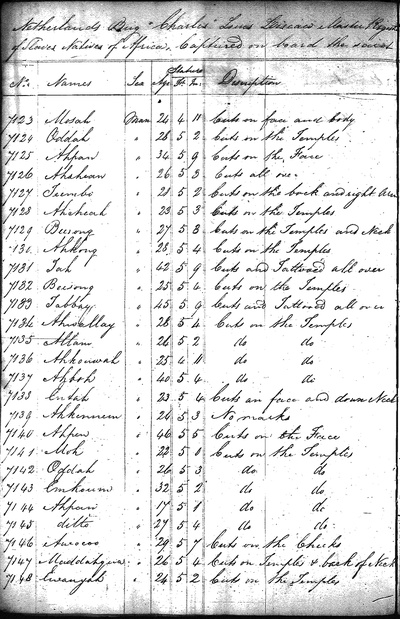 Netherlands Brig "Charles" Louis Master Register
of Slaves Natives of Africa, Captured on board the
No. Names Sex Age Stature Ft. In. Description
7123 Mosah Man 24 4 11 Cuts on face and body
7124 Oddah " 28 5 2 Cuts on the Temples
7125 Ahpan " 34 5 9 Cuts on the Face
7126 " 26 5 3 Cuts all over
7127 " 21 5 2 Cuts on the back and right Arm
7128 " 23 5 3 Cuts on the Temples
7129 Beesong " 27 5 8 Cuts on the Temples and Neck
7130 Ahkong " 25 5 4 Cuts on the Temples
7131 Jah " 42 5 9 Cuts and Tattooed all over
7132 Boosong " 25 5 Cuts on the Temples
7133 Tabbay " 45 5 Cuts and Tattooed all over
7134 " 28 5 4 Cuts on the Temples
7135 Attam " 26 5 2 do do
7136 Ahkouwah " 25 4 11 do do
7137 Ahboh " 40 5 4 do do
7138 Entah " 23 5 4 Cuts on face and down Neck
7139 Ahkenneem " 24 5 3 No marks
7140 Ahpen " 46 5 5 Cuts on the Face
7141 Moh " 22 5 0 Cuts on the Temples
7142 Oddah " 26 5 3 do do
7143 Emkoum " 32 5 2 do do
7144 Ahpan " 17 5 1 do do
7145 ditto " 27 5 4 do do
7146 " 29 5 7 Cuts on the Cheeks
7147 " 26 5 4 Cuts on Temples & back of Neck
7148 Ewangah " 24 5 2 Cuts on the Temples